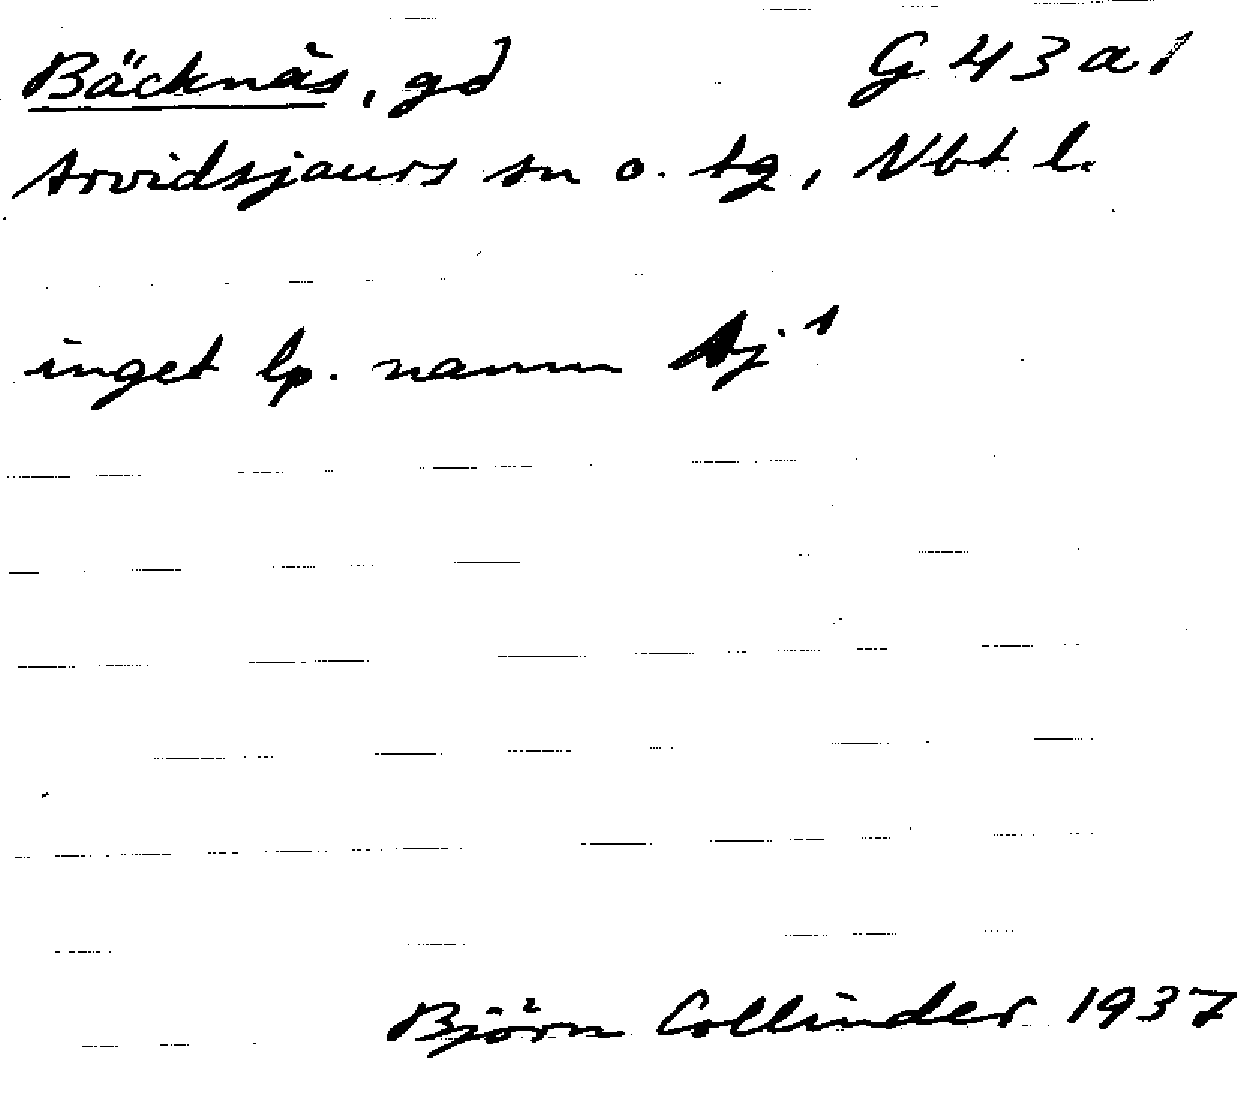 Bäcknäs, gd G 43 a 1
Arvidsjaurs sn o. tg, Nbt l.
inget lp. namn Aj¹
Björn Collinder 1937